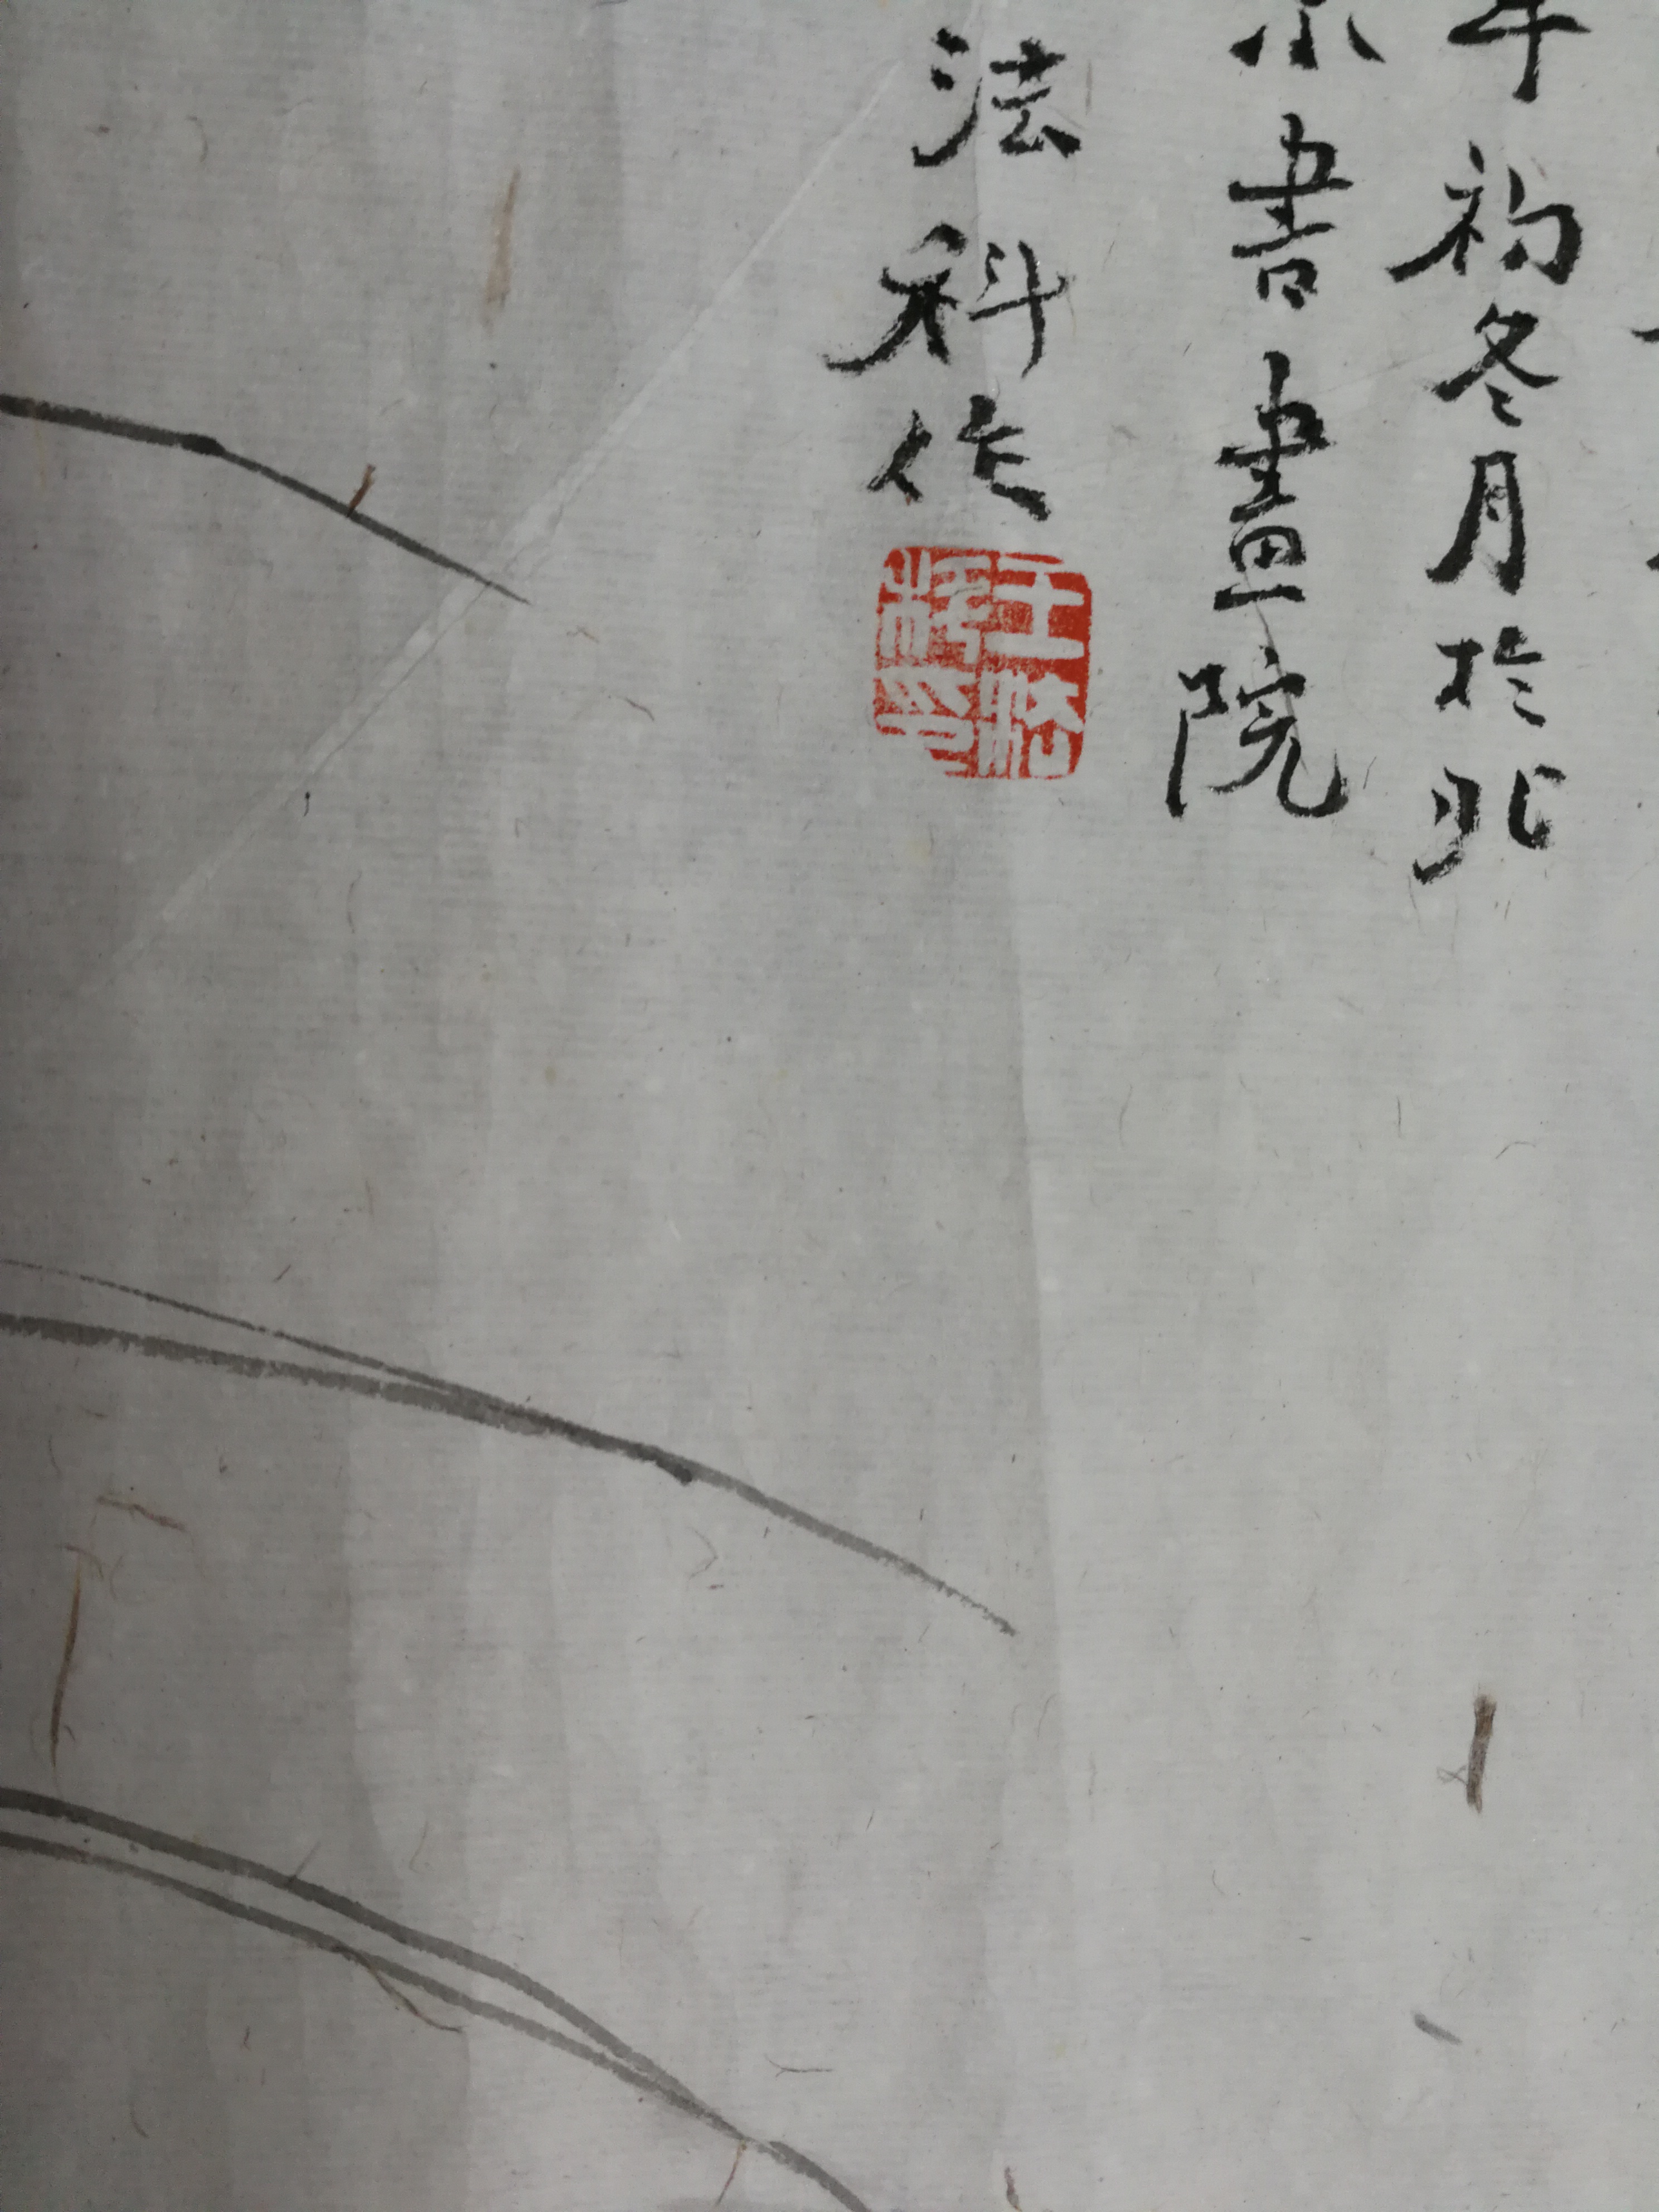 年初冬月於北
京書畫院
法科作